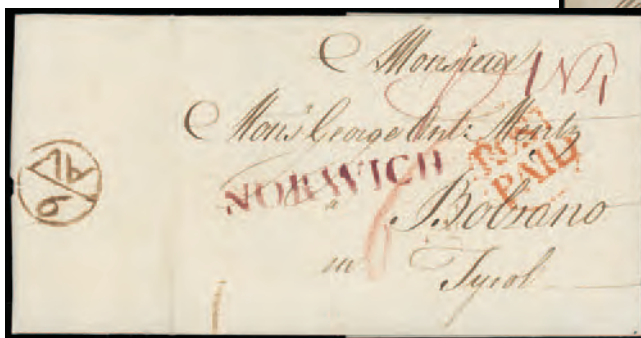 Monsieur
Mons George Ant: Mentz
NORWICH
POST
PAID
a
Bolzano
in
Tyrol
AU
9